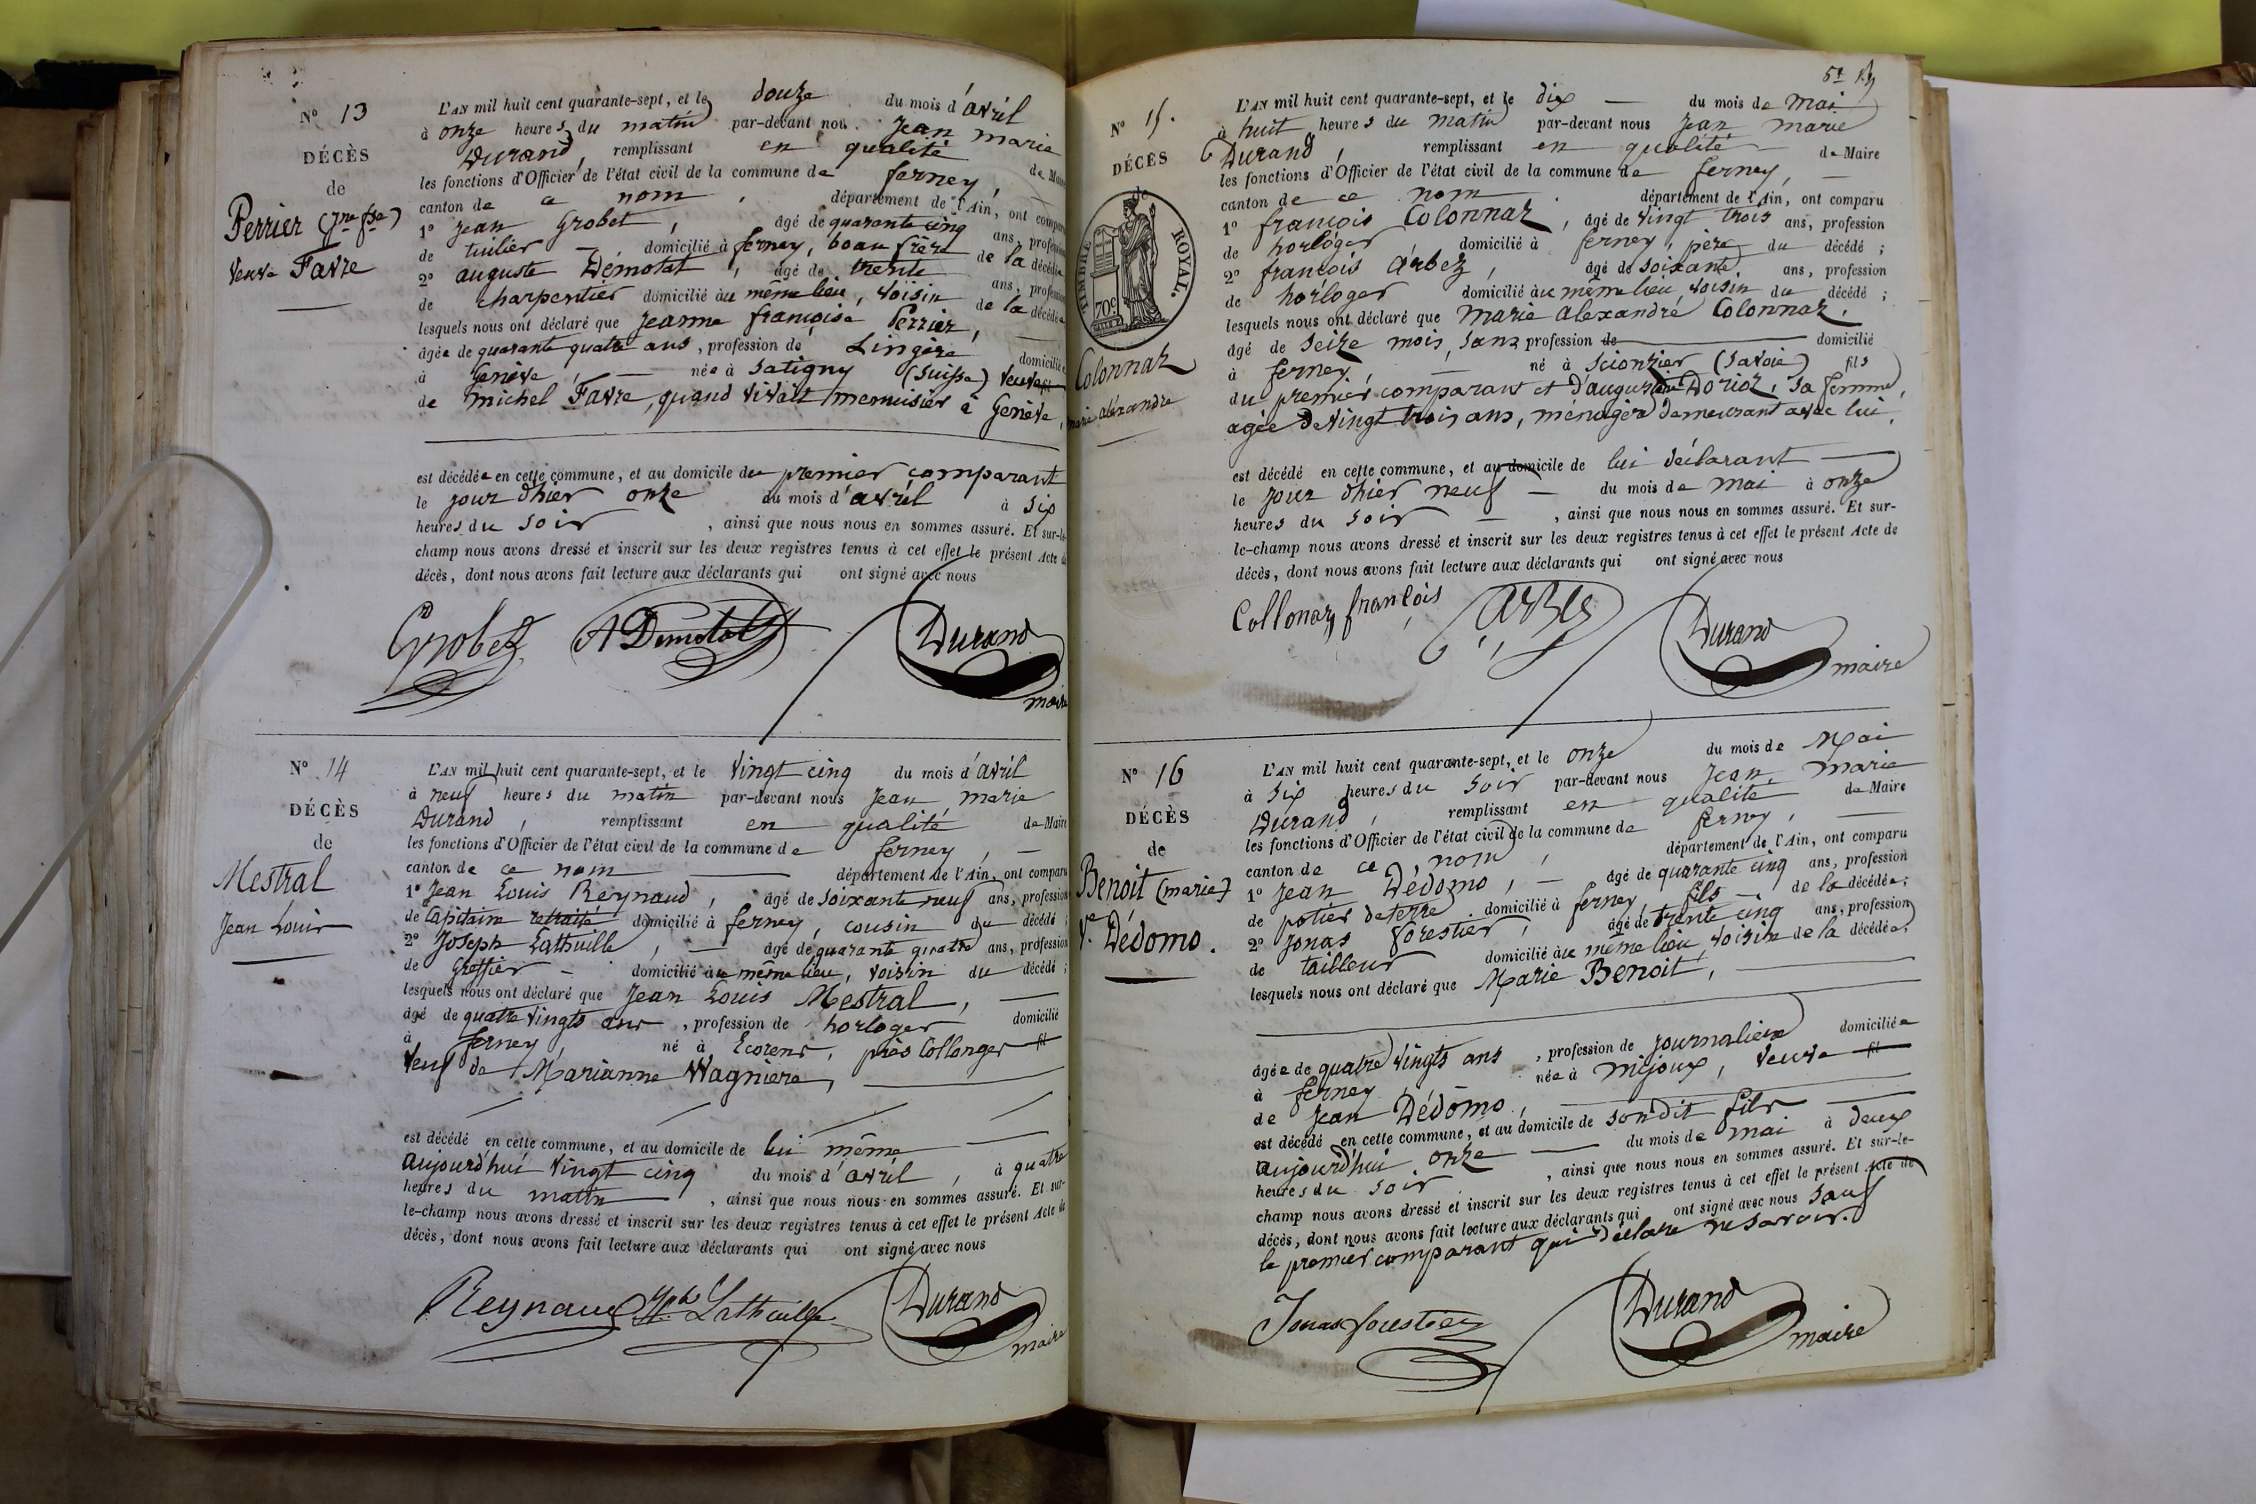 N° 13
DÉCÈS
de
Perrier (Jne fse)
veuve Favre
L'AN mil huit cent quarante-sept, et le douze du mois d'avril
à onze heures du matin par-devant nous Jean marie
Durand, remplissant en qualité de Maire
les fonctions d'Officier de l'état civil de la commune de ferney,
canton de ce nom, département de l'Ain, ont comparu
1° Jean Grobet, âgé de quarante cinq ans, profession
de tuilier domicilié à ferney, beau frère de la décédée
2° auguste Démotat, âgé de trente ans, profession
de charpentier domicilié au même lieu, voisin de la décédée
lesquels nous ont déclaré que Jeanne françoise Perrier,
âgée de quarante quatre ans, profession de Lingère domiciliée
à Genève, née à Satigny (Suisse) veuve
de michel Favre, quand vivait menuisier à Genève,
est décédée en cette commune, et au domicile du premier comparant
le jour d'hier onze du mois d'avril à six
heures du soir, ainsi que nous nous en sommes assuré. Et sur-le-
champ nous avons dressé et inscrit sur les deux registres tenus à cet effet le présent Acte de
décès, dont nous avons fait lecture aux déclarants qui ont signé avec nous
Grobet A Demotat Durand
maire
N° 14
DÉCÈS
de
Mestral
Jean Louis
L'AN mil huit cent quarante-sept, et le vingt cinq du mois d'avril
à neuf heures du matin par-devant nous Jean marie
Durand, remplissant en qualité de Maire
les fonctions d'Officier de l'état civil de la commune de ferney,
canton de ce nom département de l'Ain, ont comparu
1° Jean Louis Reynaud, âgé de soixante neuf ans, profession
de Capitaine retraité domicilié à ferney, cousin du décédé;
2° Joseph Lathuille, âgé de quarante quatre ans, profession
de Greffier domicilié au même lieu, voisin du décédé;
lesquels nous ont déclaré que Jean Louis Mestral,
âgé de quatre vingts ans, profession de horloger domicilié
à ferney, né à Ecorens, près Collonges fil
veuf de Marianne Wagniere,
est décédé en cette commune, et au domicile de lui même
aujourd'hui vingt cinq du mois d'avril, à quatre
heures du matin, ainsi que nous nous en sommes assuré. Et sur-
le-champ nous avons dressé et inscrit sur les deux registres tenus à cet effet le présent Acte de
décès, dont nous avons fait lecture aux déclarants qui ont signé avec nous
Reynaud Lathuille Durand
maire
N° 15.
DÉCÈS
de
TIMBRE ROYAL.
70c
Colonnaz
marie alexandre
L'AN mil huit cent quarante-sept, et le dix du mois de mai
à huit heures du matin par-devant nous Jean marie
Durand, remplissant en qualité de Maire
les fonctions d'Officier de l'état civil de la commune de ferney,
canton de ce nom département de l'Ain, ont comparu
1° françois Colonnaz, âgé de vingt trois ans, profession
de horloger domicilié à ferney, père du décédé;
2° françois Arbez, âgé de soixante ans, profession
de horloger domicilié au même lieu, voisin du décédé;
lesquels nous ont déclaré que marie alexandre Colonnaz,
âgé de seize mois, sans profession de domicilié
à ferney, né à Scionzier (Savoie) fils
du premier comparant et d'augustine Dorioz, sa femme,
agée de vingt trois ans, ménagère demeurant avec lui,
est décédé en cette commune, et au domicile de lui déclarant
le jour d'hier neuf du mois de mai à onze
heures du soir, ainsi que nous nous en sommes assuré. Et sur-
le-champ nous avons dressé et inscrit sur les deux registres tenus à cet effet le présent Acte de
décès, dont nous avons fait lecture aux déclarants qui ont signé avec nous
Collonaz françois Arbez Durand
maire
N° 16
DÉCÈS
de
Benoit (marie)
Ve Dédomo.
L'AN mil huit cent quarante-sept, et le onze du mois de Mai
à six heures du soir par-devant nous Jean marie
Durand, remplissant en qualité de Maire
les fonctions d'Officier de l'état civil de la commune de ferney,
canton de ce nom, département de l'Ain, ont comparu
1° Jean Dédomo, âgé de quarante cinq ans, profession
de potier de terre domicilié à ferney, fils de la décédée;
2° Jonas Forestier, âgé de trente cinq ans, profession
de tailleur domicilié au même lieu, voisin de la décédée;
lesquels nous ont déclaré que Marie Benoit,
âgée de quatre vingts ans, profession de journalière domiciliée
à ferney née à mijoux, veuve fil
de Jean Dédomo,
est décédé en cette commune, et au domicile de son dit fils
aujourd'hui onze du mois de mai à deux
heures du soir, ainsi que nous nous en sommes assuré. Et sur-le-
champ nous avons dressé et inscrit sur les deux registres tenus à cet effet le présent Acte de
décès, dont nous avons fait lecture aux déclarants qui ont signé avec nous sauf
le premier comparant qui déclare ne savoir.
Jonas forestier Durand
maire